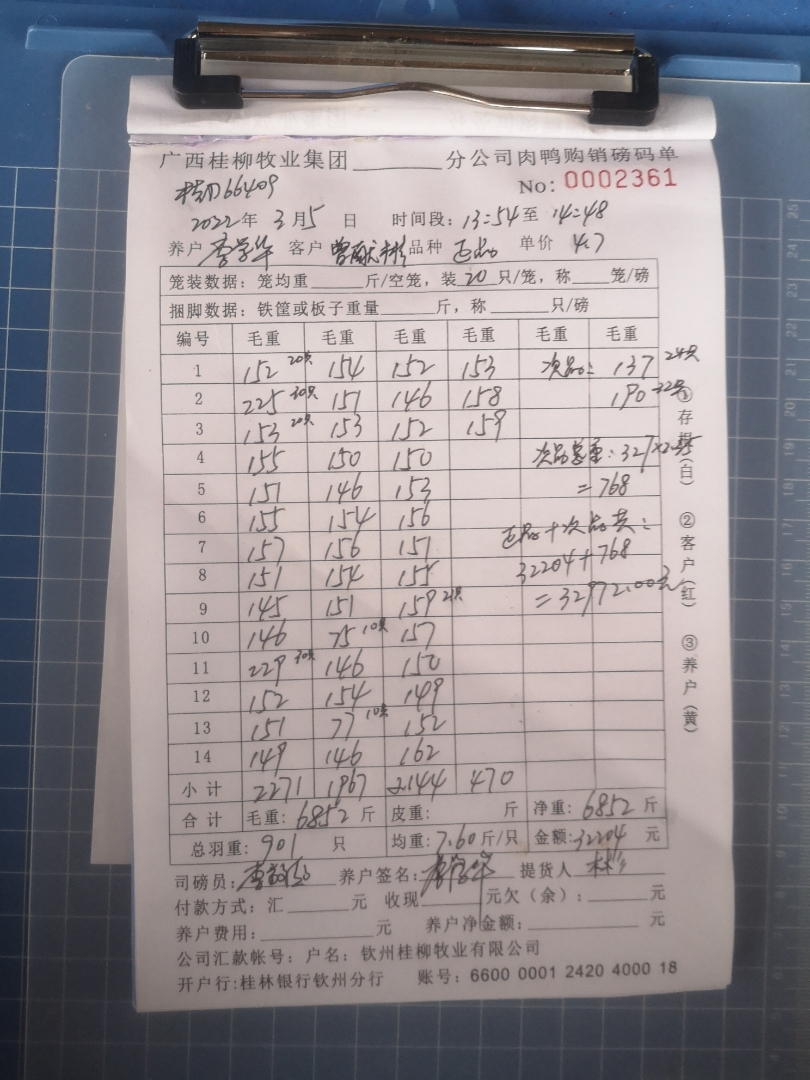 广西桂柳牧业集团________分公司肉鸭购销磅码单
66409 No: 0002361
2022年 3月5日 时间段: 13:54至 14:48
养户 李学华 客户 曾献彬 品种 正品 单价 4.7
笼装数据: 笼均重______斤/空笼, 装20只/笼, 称____笼/磅
捆脚数据: 铁筐或板子重量______斤, 称______只/磅
编号 毛重 毛重 毛重 毛重 毛重 毛重
1 152 20只 154 152 153 次品: 137 24只
2 225 30只 151 146 158 190 32只
3 153 20只 153 152 159
4 155 150 150 次品总重: 327
5 151 146 153 =768
6 155 154 156 正品+次品共:
7 157 156 151 32204+768
8 151 154 155 =32972.00元
9 145 151 159 21只
10 146 75 10只 157
11 229 30只 146 150
12 152 154 149
13 151 77 10只 152
14 149 146 162
小计 2271 1967 2144 470
合计 毛重: 6852 斤 皮重: 斤 净重: 6852 斤
总羽重: 901 只 均重: 7.60 斤/只 金额: 32204 元
司磅员: 养户签名: 李学华 提货人
付款方式: 汇______元 收现______元欠(余): ______元
养户费用: __________元 养户净金额: __________元
公司汇款帐号: 户名: 钦州桂柳牧业有限公司
开户行: 桂林银行钦州分行 账号: 6600 0001 2420 4000 18
①存根(白) ②客户(红) ③养户(黄)